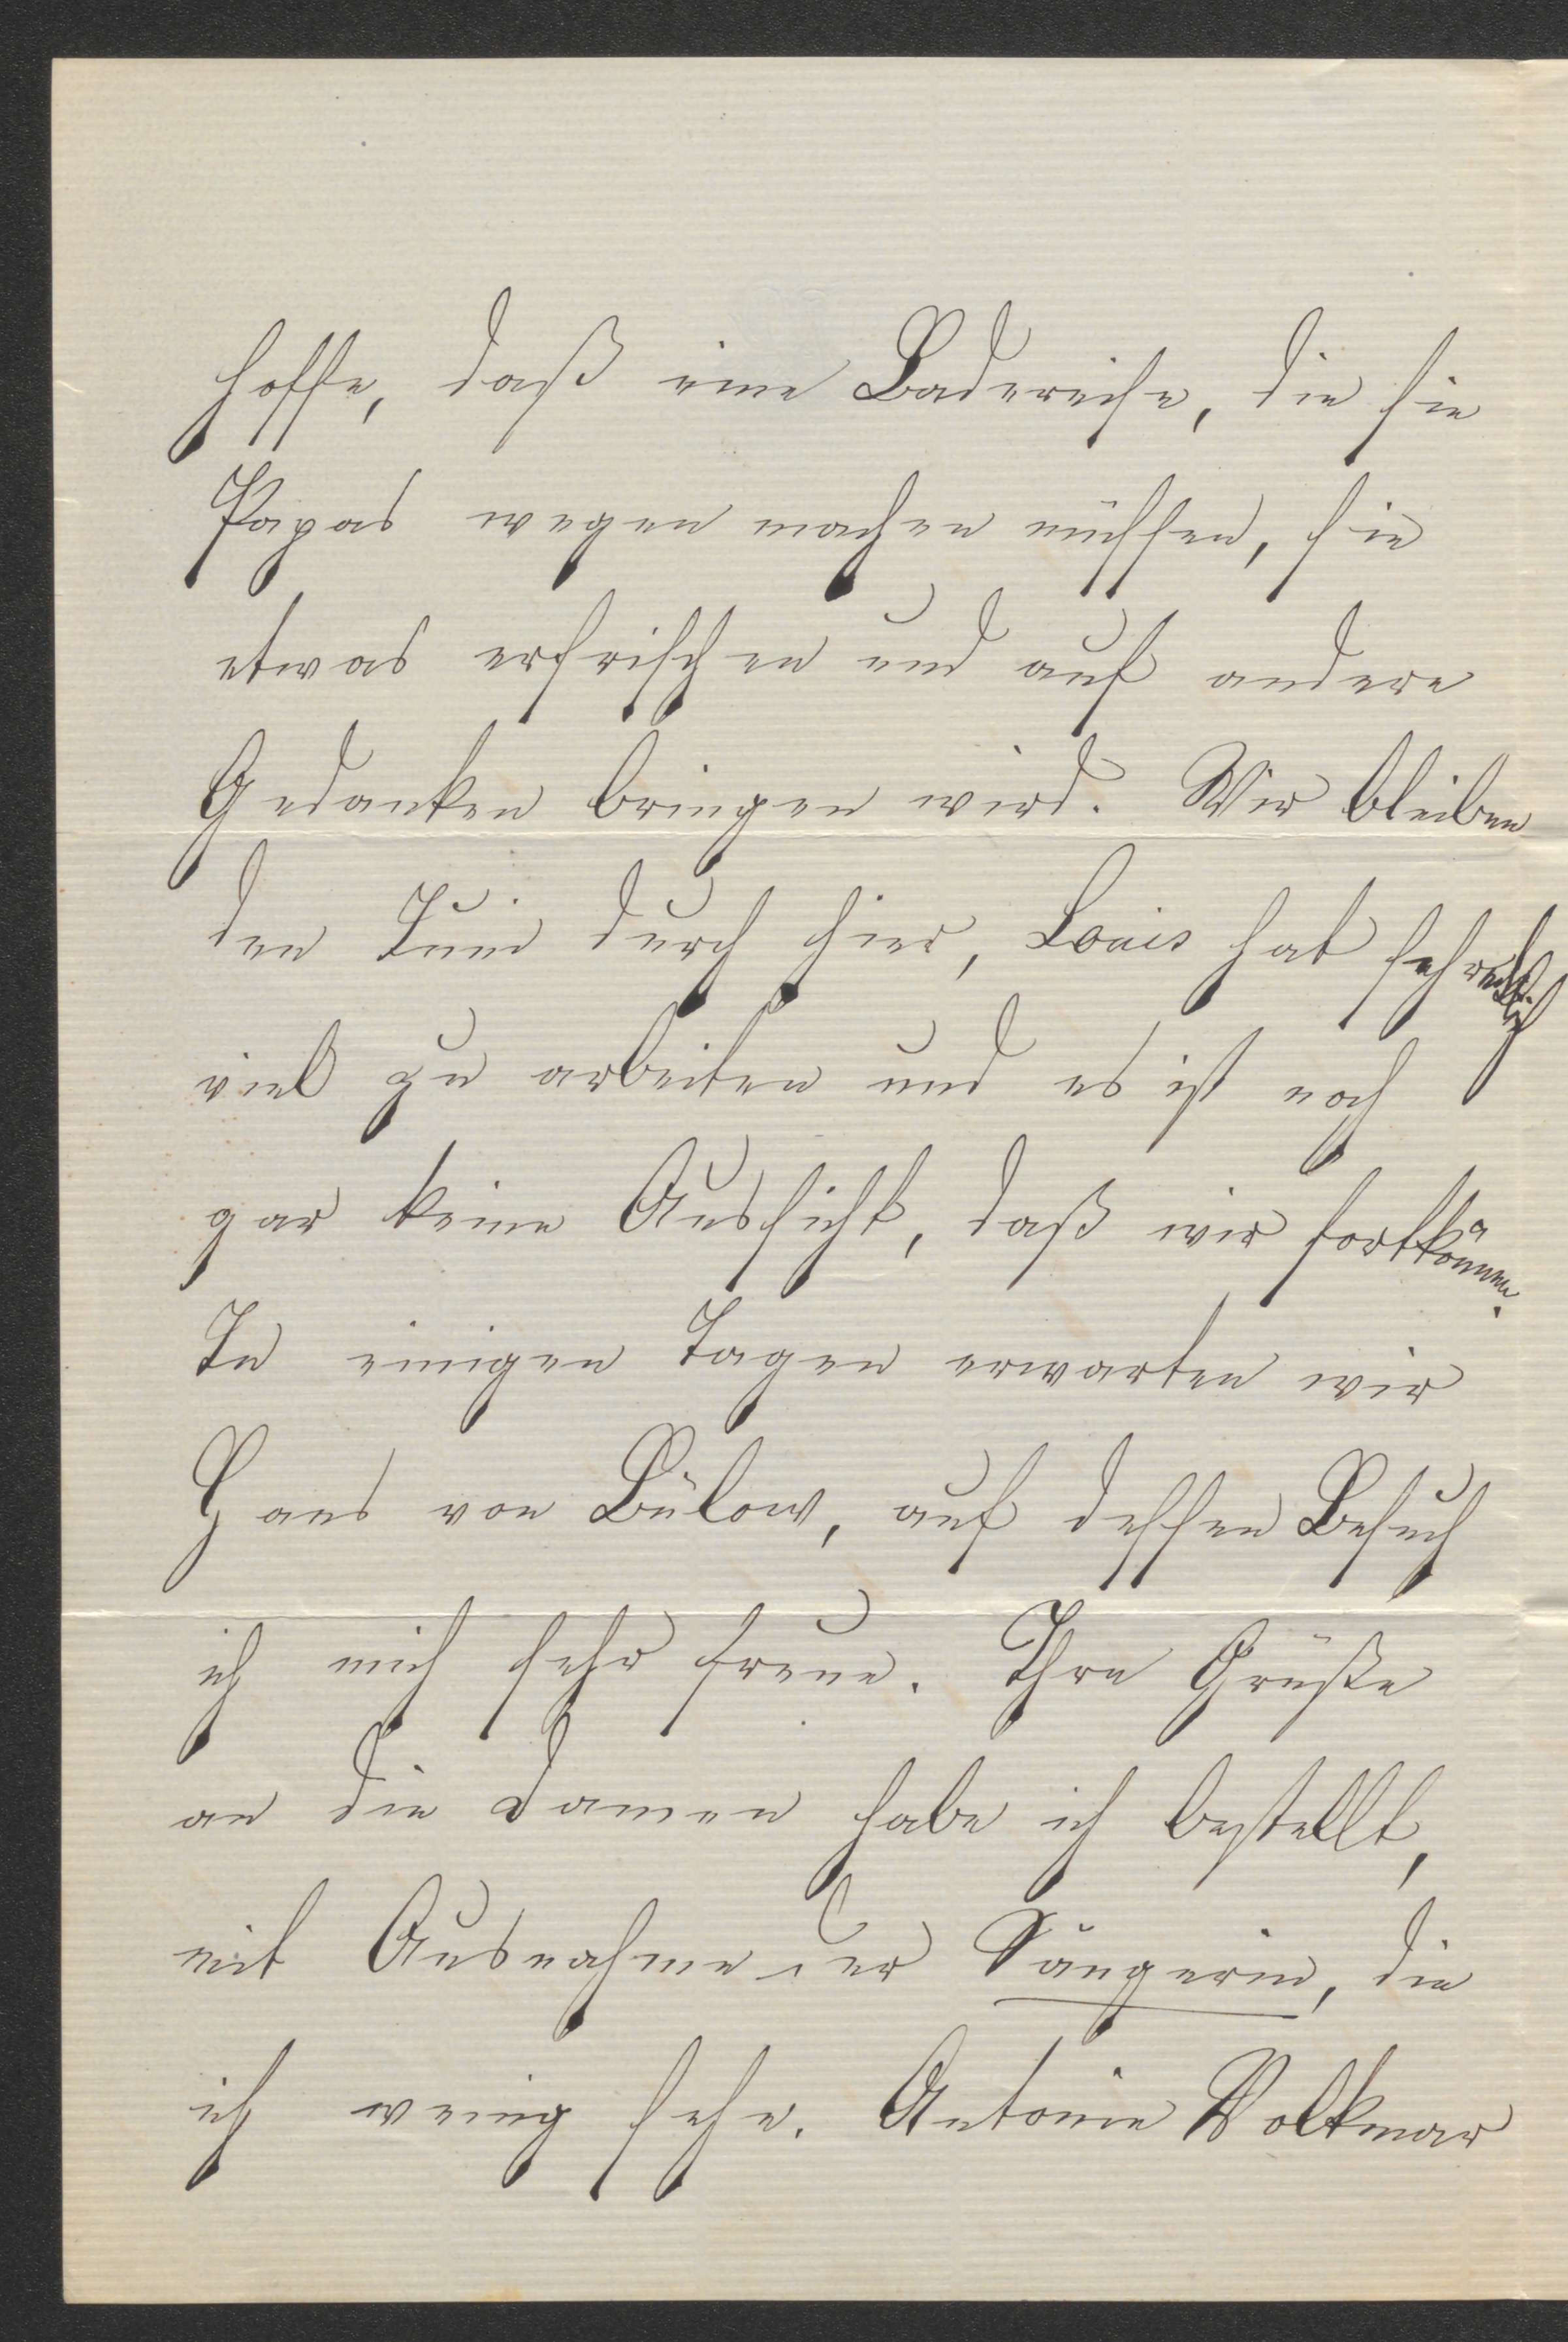 hoffe, daß eine Badereise, die sie
Papas wegen machen müssen, sie
etwas erfrischen und auf andere
Gedanken bringen wird. Wir bleiben
den Juni durch hier, Louis hat schrecklich
viel zu arbeiten und es ist noch
gar keine Aussicht, daß wir fortkönnen.
In einigen Tagen erwarten wir
Hans von Bülow, auf dessen Besuch
ich mich sehr freue. Ihre Grüße
an die Damen habe ich bestellt,
mit Ausnahme der Sängerin, die
ich wenig sehe. Antonie Volkmar